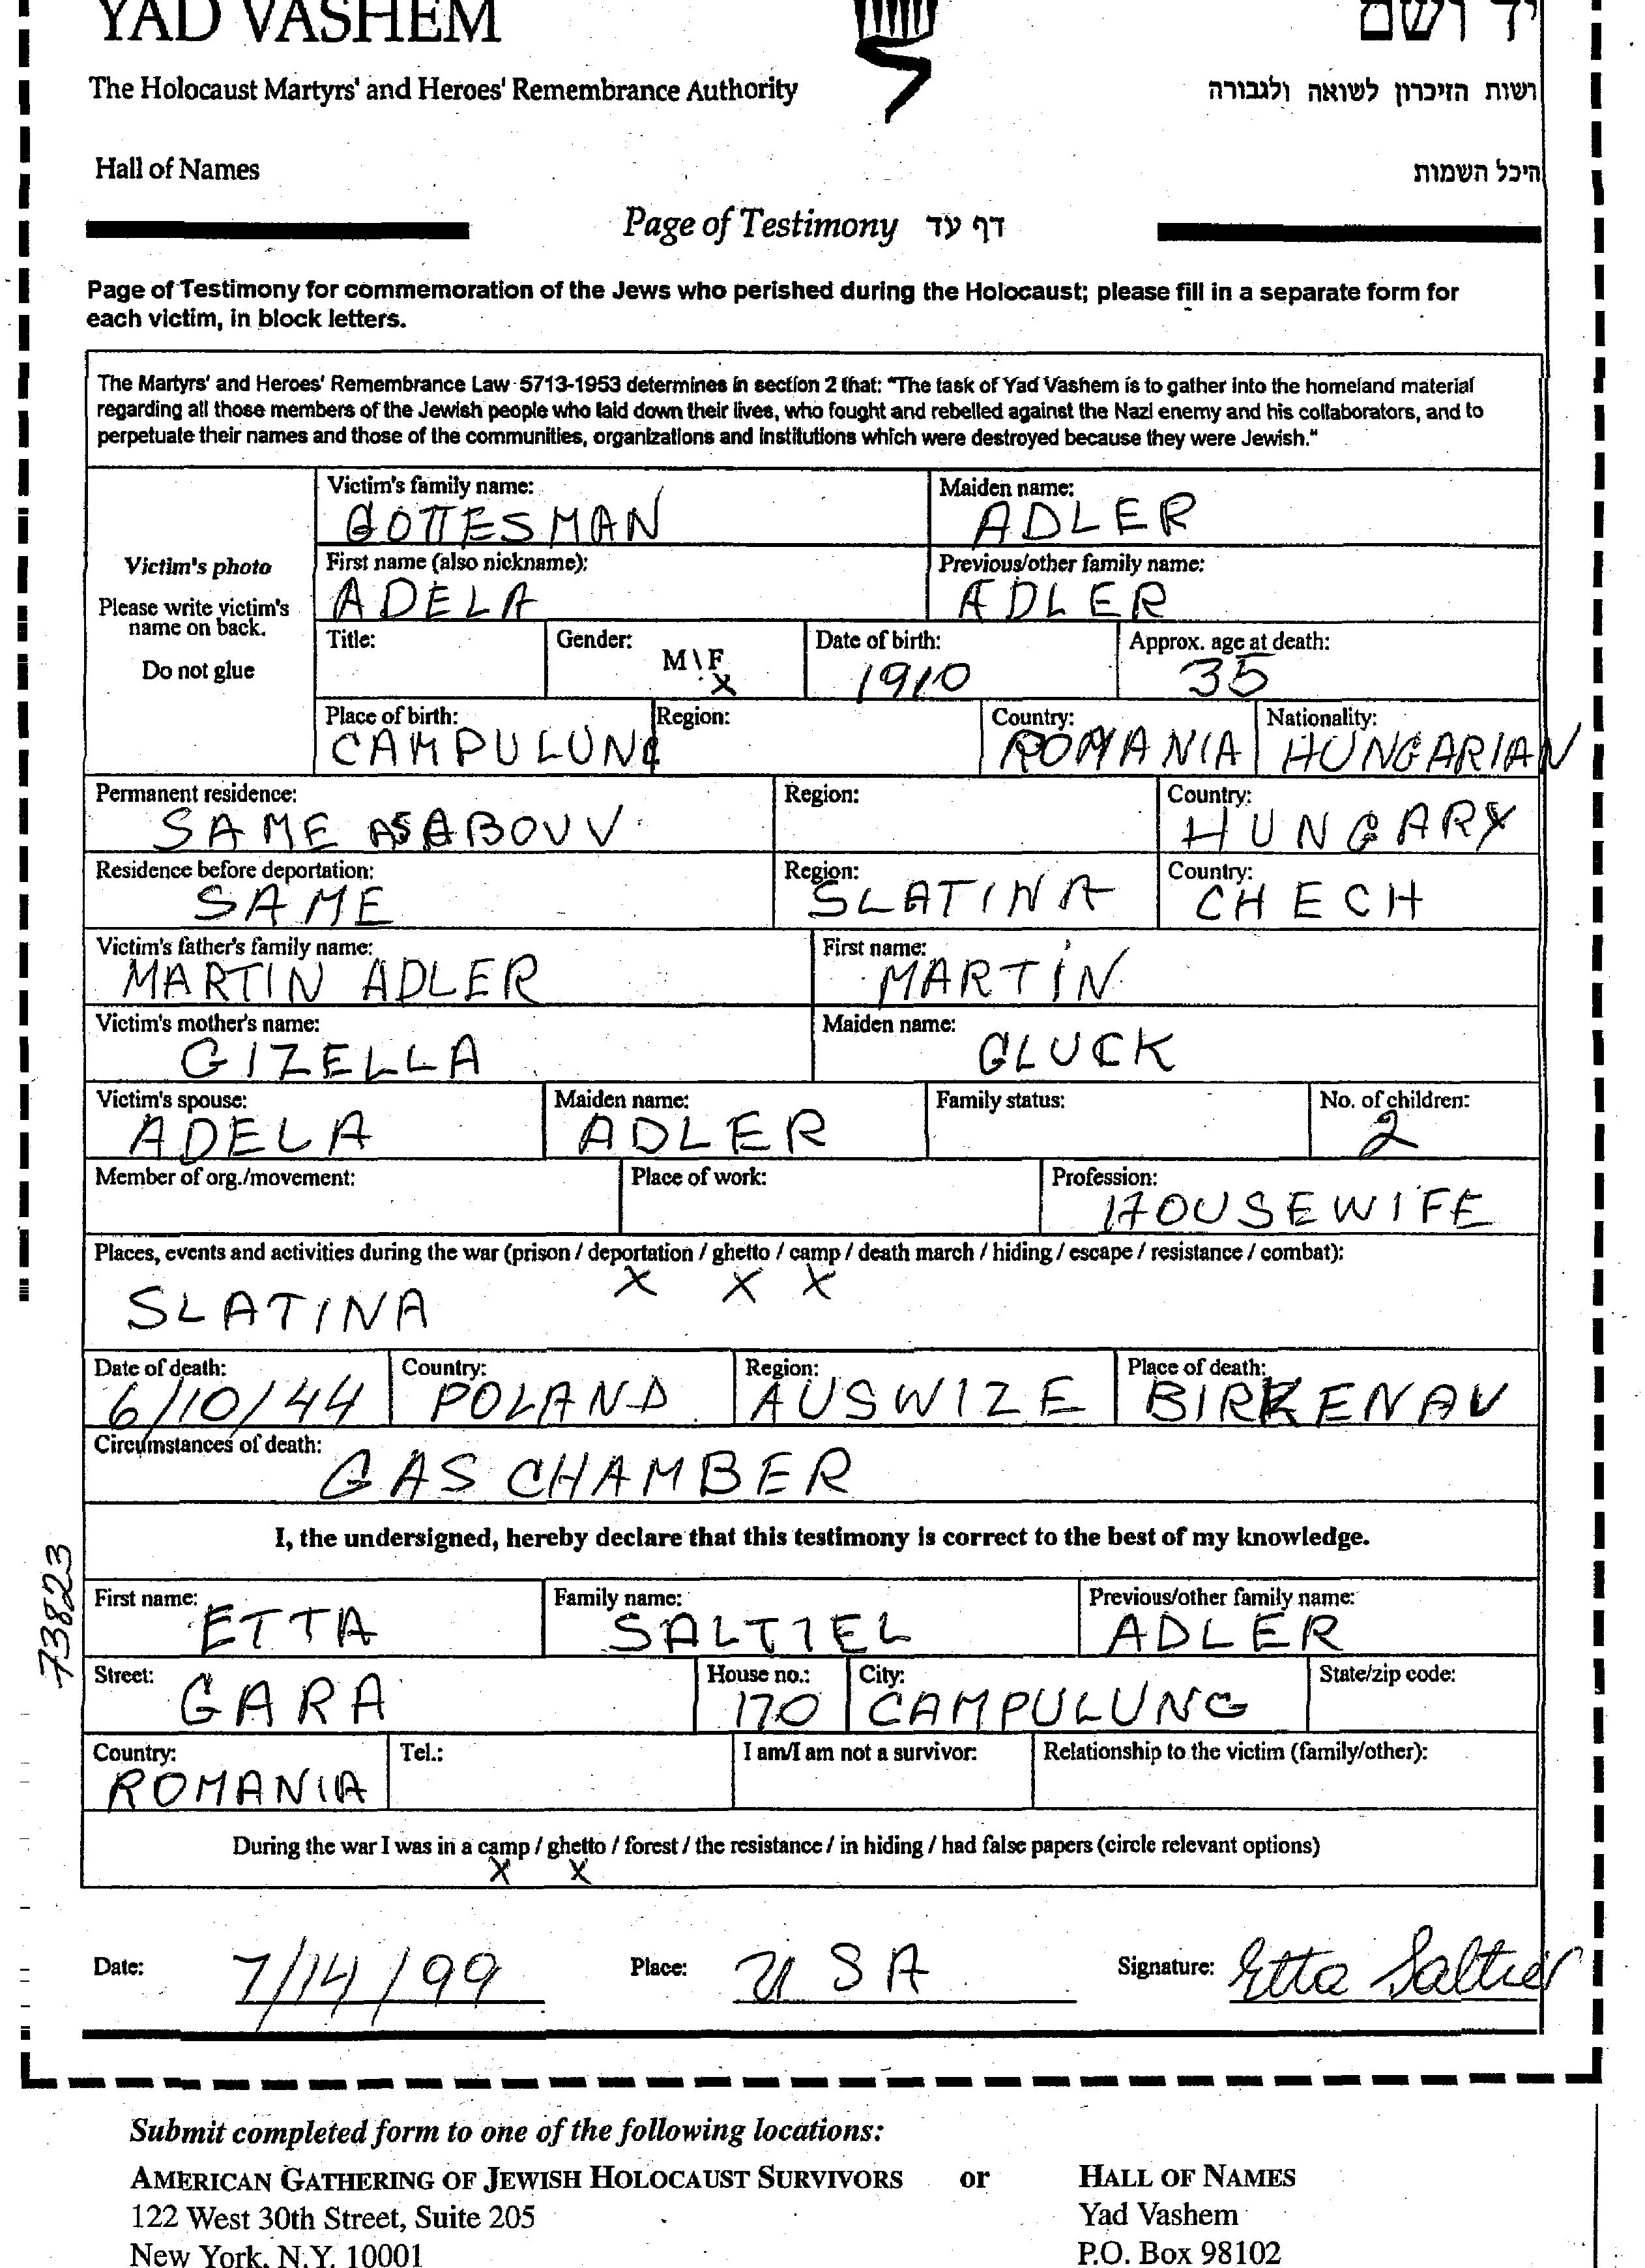 YAD VASHEM
יד ושם
The Holocaust Martyrs' and Heroes' Remembrance Authority
רשות הזיכרון לשואה ולגבורה
Hall of Names
היכל השמות
Page of Testimony דף עד
Page of Testimony for commemoration of the Jews who perished during the Holocaust; please fill in a separate form for
each victim, in block letters.
The Martyrs' and Heroes' Remembrance Law 5713-1953 determines in section 2 that: "The task of Yad Vashem is to gather into the homeland material
regarding all those members of the Jewish people who laid down their lives, who fought and rebelled against the Nazi enemy and his collaborators, and to
perpetuate their names and those of the communities, organizations and institutions which were destroyed because they were Jewish."
Victim's photo
Please write victim's
name on back.
Do not glue
Victim's family name: Maiden name:
GOTTESMAN ADLER
First name (also nickname): Previous/other family name:
ADELA ADLER
Title: Gender: M\F Date of birth: Approx. age at death:
X 1910 35
Place of birth: Region: Country: Nationality:
CAMPULUNG ROMANIA HUNGARIAN
Permanent residence: Region: Country:
SAME AS ABOVV HUNGARY
Residence before deportation: Region: Country:
SAME SLATINA CHECH
Victim's father's family name: First name:
MARTIN ADLER MARTIN
Victim's mother's name: Maiden name:
GIZELLA GLUCK
Victim's spouse: Maiden name: Family status: No. of children:
ADELA ADLER 2
Member of org./movement: Place of work: Profession:
HOUSEWIFE
Places, events and activities during the war (prison / deportation / ghetto / camp / death march / hiding / escape / resistance / combat):
X X X
SLATINA
Date of death: Country: Region: Place of death:
6/10/44 POLAND AUSWIZE BIRKENAU
Circumstances of death:
GAS CHAMBER
I, the undersigned, hereby declare that this testimony is correct to the best of my knowledge.
73823
First name: Family name: Previous/other family name:
ETTA SALTIEL ADLER
Street: House no.: City: State/zip code:
GARA 170 CAMPULUNG
Country: Tel.: I am/I am not a survivor: Relationship to the victim (family/other):
ROMANIA
During the war I was in a camp / ghetto / forest / the resistance / in hiding / had false papers (circle relevant options)
X X
Date: 7/14/99 Place: USA Signature: Etta Saltiel
Submit completed form to one of the following locations:
AMERICAN GATHERING OF JEWISH HOLOCAUST SURVIVORS or HALL OF NAMES
122 West 30th Street, Suite 205 Yad Vashem
New York, N.Y. 10001 P.O. Box 98102